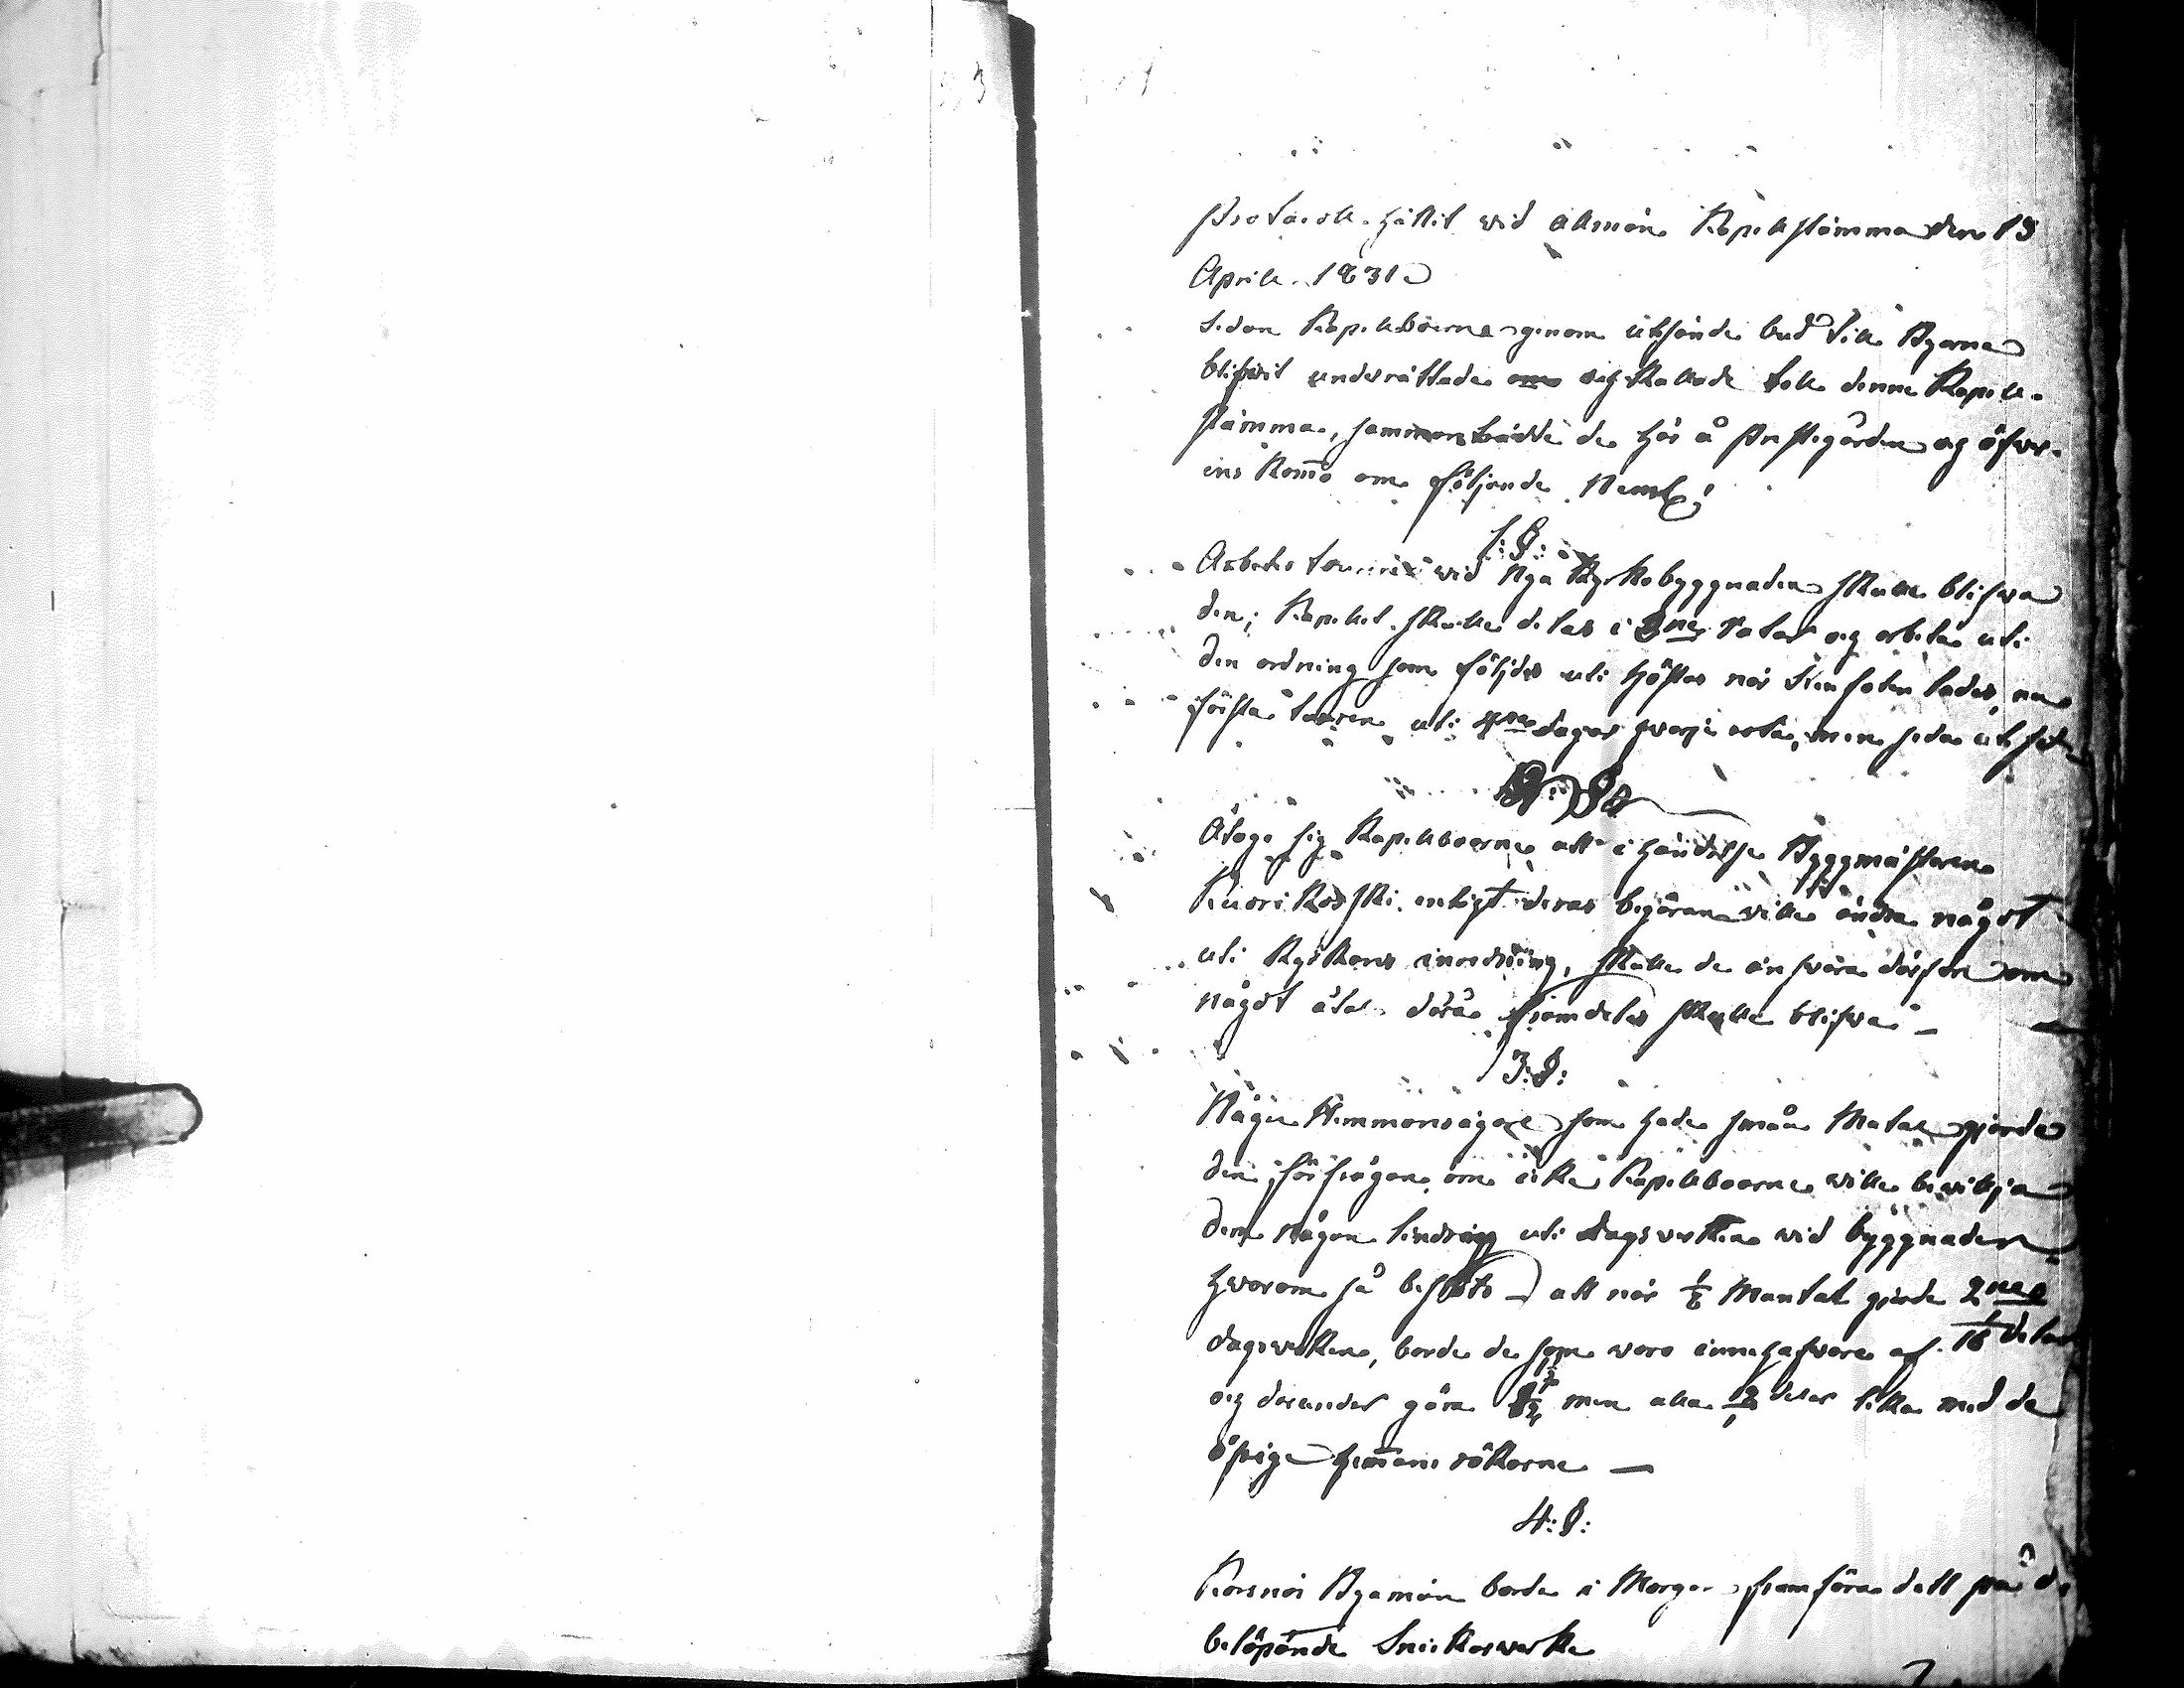 Protocoll hållit wid allmän Kapellstämma den 13
Aprill 1831
Sedan Kapellboerne genom utsände bud till Byarne
blifwit underrättade om sig kallade till denne Kapell-
stämma, sammanträdde de här å Prestegården og öfwer-
ens komo om följande Neml:
1:§:
Arbets tourerne wid Nya Kyrkobyggnaden skulle blifwa
den; Kapellet skulle delas i 3ne rotar og arbeta uti
den ordning som följdes uti höstas när Stenfoten lades, nu
första touren uti 4ra dagar hvarje rota, men sedan
2:§
Åtogo sig Kapellboerne att i händelse Byggmästaren
Kuorikoski enligt deras begäran wille ändra något
uti Kyrkans inredning, skulle de answara derföre om
något åtal derå framdeles skulle blifwa –
3:§:
Några Hemmansägare som hade små Matal gjorde
den förfrågan om icke Kapellboerne wille bewillja
dem någon lindring uti dagswerken wid byggnaden
hwarom så beslöts – att när 1/6 Mantal gjorde 2ne
dagswerken, borde de som woro innehafware af 1/18 delar
og derunder göra 1 1/2 men alla delar lika med de
öfrige hemans rökarne —
4:§:
Korsnäs Byamän borde i Morgon framföra dett på de
belöpande Snickarwerke